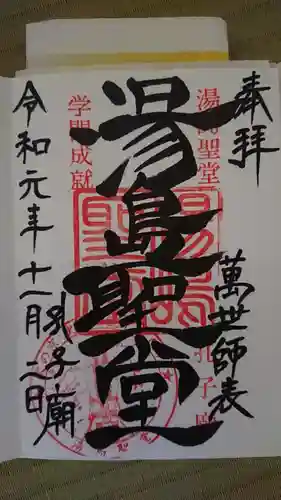 奉拝
湯島聖堂
萬世師表
湯島聖堂
孔子廟
学問成就
孔子廟
令和元年十一月二日